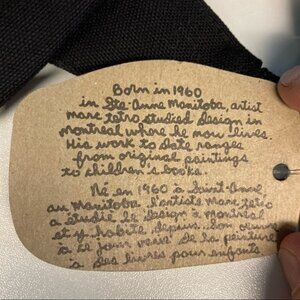 Born in 1960
in Ste-Anne Manitoba, artist
marc tetro studied design in
montreal where he now lives.
His work to date ranges
from original paintings
to children's books.
Né en 1960 à Saint-Anne
au Manitoba l'artiste marc tetro
a étudié le design à montréal
et y habite depuis. Son oeuvre
à ce jour varie de la peinture
à des livres pour enfants